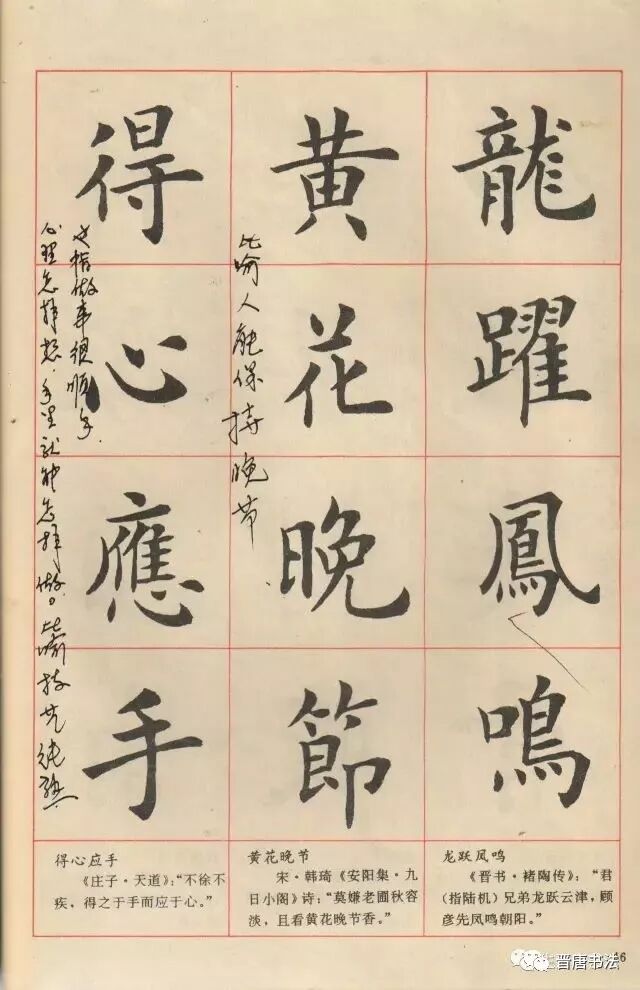 龍躍鳳鳴
黄花晚節
得心應手
比喻人能保持晚节
也指做事很顺手.
心里怎样想.手里就能怎样做。比喻技艺纯熟
龙跃凤鸣
《晋书·褚陶传》：“君
（指陆机）兄弟龙跃云津，顾
彦先凤鸣朝阳。”
黄花晚节
宋·韩琦《安阳集·九
日小阁》诗：“莫嫌老圃秋容
淡，且看黄花晚节香。”
得心应手
《庄子·天道》：“不徐不
疾，得之于手而应于心。”
46
晋唐书法